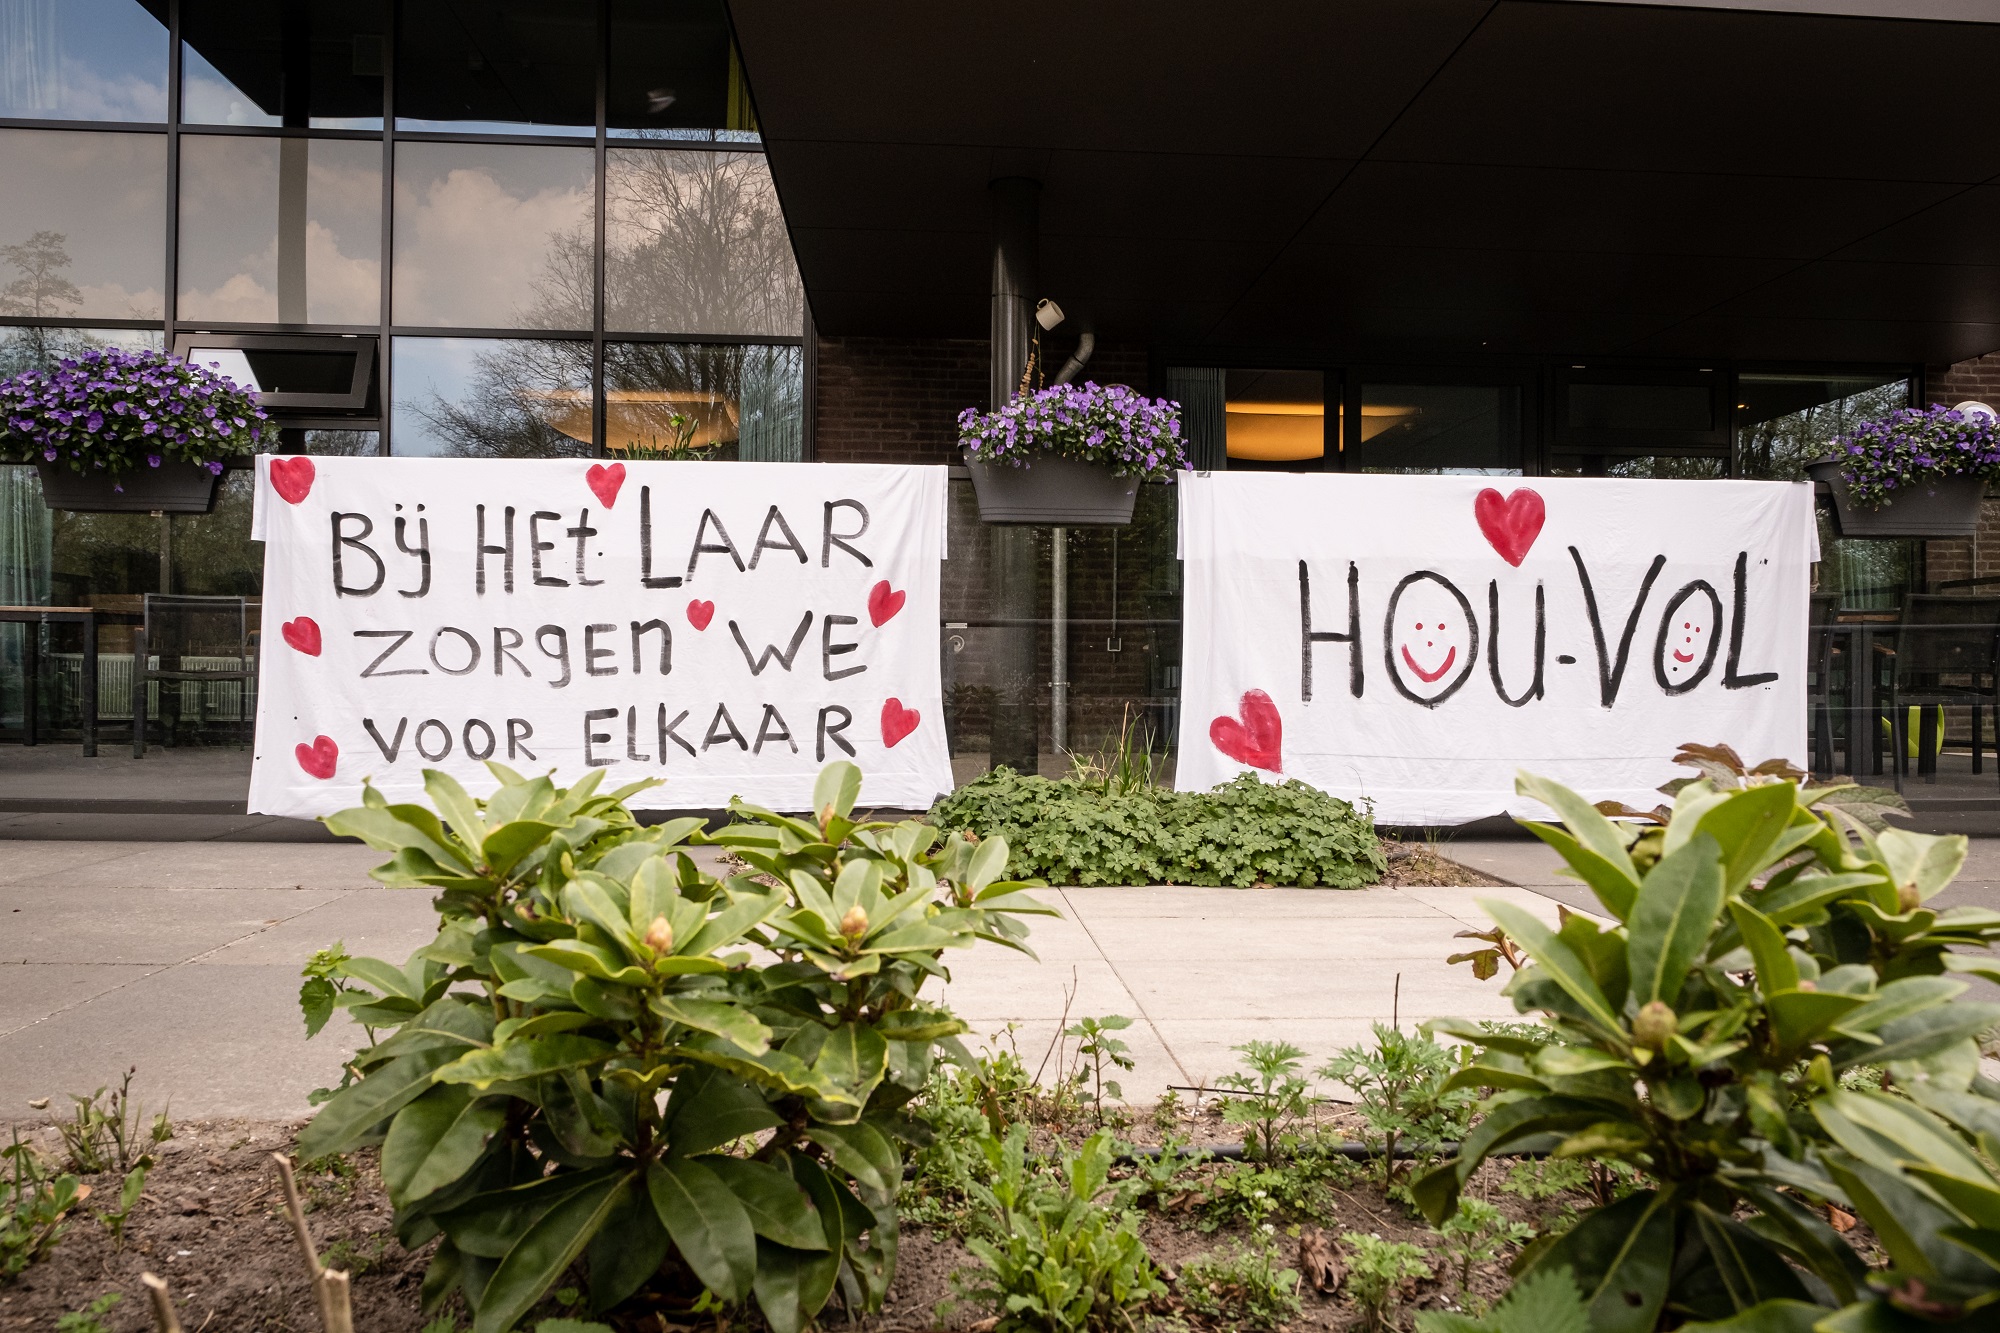 Bij HEt LAAR
ZORgEn WE
VOOR ELKAAR
HOU-VOL